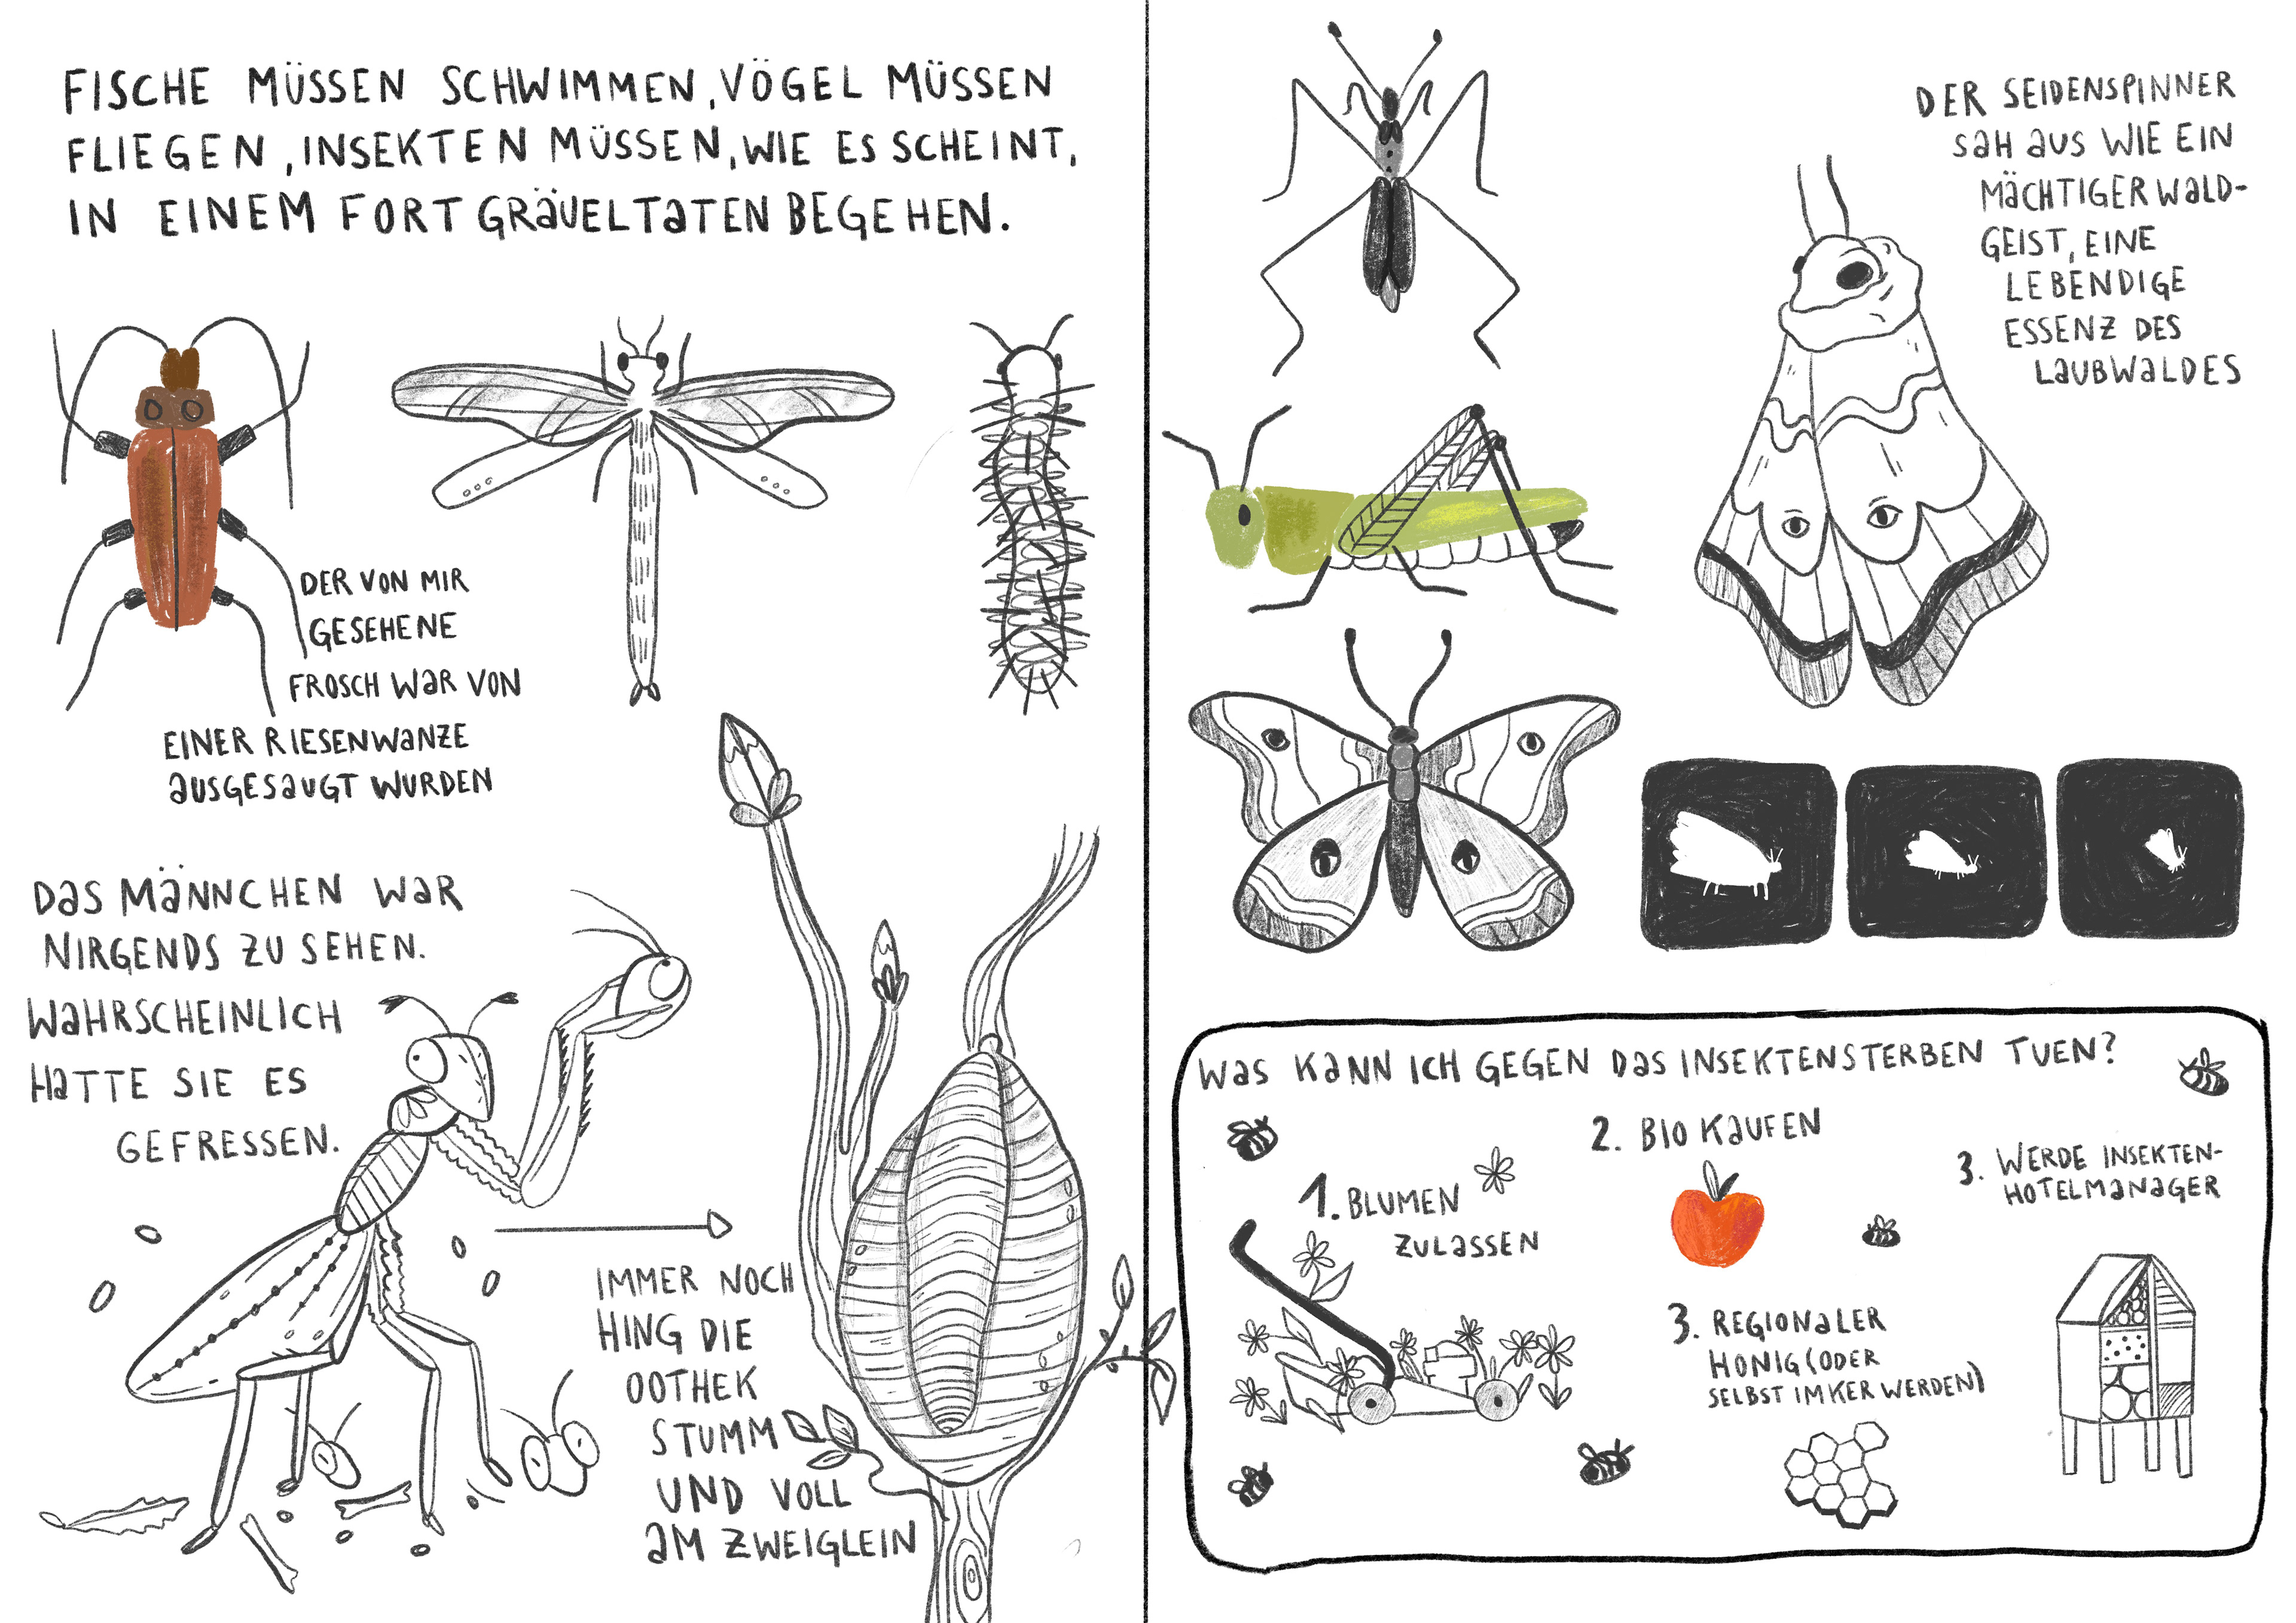 FISCHE MÜSSEN SCHWIMMEN, VÖGEL MÜSSEN
FLIEGEN, INSEKTEN MÜSSEN, WIE ES SCHEINT,
IN EINEM FORT GRÄUELTATEN BEGEHEN.
DER VON MIR
GESEHENE
FROSCH WAR VON
EINER RIESENWANZE
AUSGESAUGT WURDEN
DAS MÄNNCHEN WAR
NIRGENDS ZU SEHEN.
WAHRSCHEINLICH
HATTE SIE ES
GEFRESSEN.
IMMER NOCH
HING DIE
OOTHEK
STUMM
UND VOLL
AM ZWEIGLEIN
DER SEIDENSPINNER
SAH AUS WIE EIN
MÄCHTIGER WALD-
GEIST, EINE
LEBENDIGE
ESSENZ DES
LAUBWALDES
WAS KANN ICH GEGEN DAS INSEKTENSTERBEN TUEN?
1. BLUMEN
ZULASSEN
2. BIO KAUFEN
3. WERDE INSEKTEN-
HOTELMANAGER
3. REGIONALER
HONIG (ODER
SELBST IMKER WERDEN)